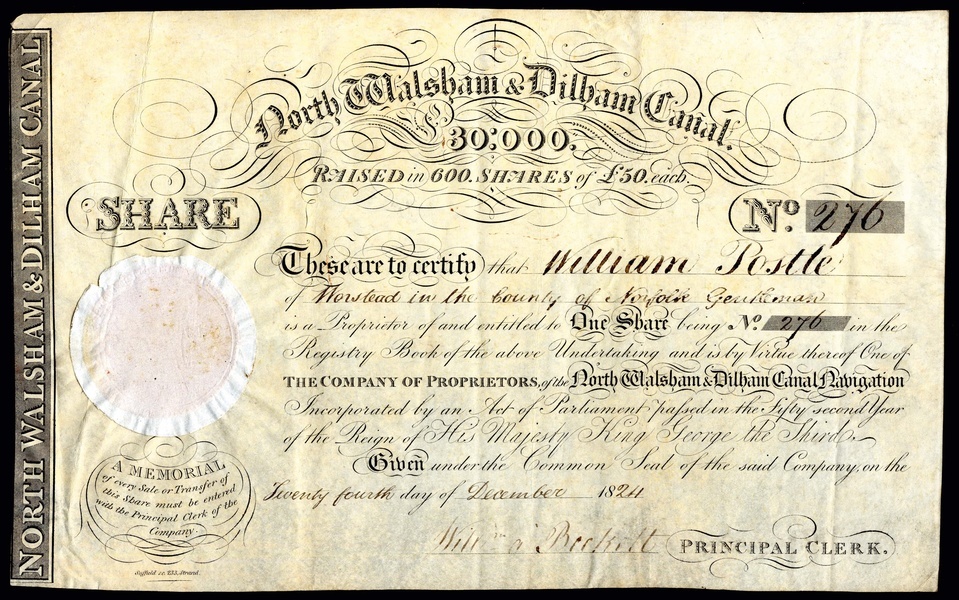 NORTH WALSHAM & DILHAM CANAL
North Walsham & Dilham Canal.
30:000.
RAISED in 600. SHARES of £50. each.
SHARE
No. 276
These are to certify that William Postle
of Worstead in the County of Norfolk Gentleman
is a Proprietor of and entitled to One Share being No. 276 in the
Registry Book of the above Undertaking and is by Virtue thereof One of
THE COMPANY OF PROPRIETORS, of the North Walsham & Dilham Canal Navigation
Incorporated by an Act of Parliament passed in the Fifty second Year
of the Reign of His Majesty King George the Third.
Given under the Common Seal of the said Company, on the
Twenty fourth day of December 1824
PRINCIPAL CLERK.
A MEMORIAL
of every Sale or Transfer of
this Share must be entered
with the Principal Clerk of the
Company.
Suffield sc. 233, Strand.